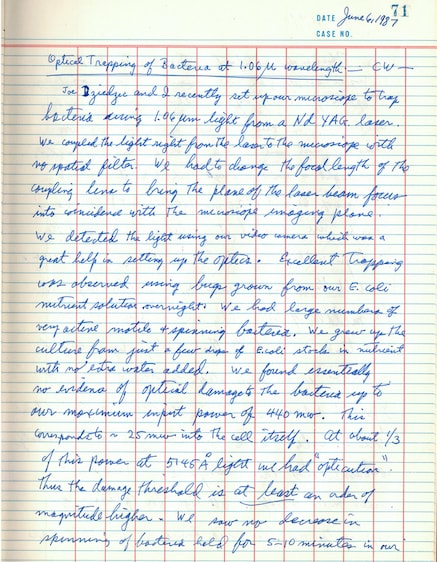 71
DATE June 6, 1987
CASE NO.
Optical Trapping of Bacteria at 1.06 µ wavelength — CW —
Joe Dziedzic and I recently set up our microscope to trap
bacteria using 1.06 µm light from a Nd YAG laser.
We coupled the light right from the laser to the microscope with
no spatial filter. We had to change the focal length of the
coupling lens to bring the plane of the laser beam focus
into coincidence with the microscope imaging plane.
We detected the light using our video camera which was a
great help in setting up the optics. Excellent trapping
was observed using bugs grown from our E. coli
nutrient solution overnight. We had large numbers of
very active motile & spinning bacteria. We grew up the
culture from just a few drops of E. coli stock in nutrient
with no extra water added. We found essentially
no evidence of optical damage to the bacteria up to
our maximum input power of 440 mw. This
corresponds to ~ 25 mw into the cell itself. At about 1/3
of this power at 5145 Å light we had "opticution".
Thus the damage threshold is at least an order of
magnitude higher. We saw no decrease in
spinning of bacteria held for 5-10 minutes in our